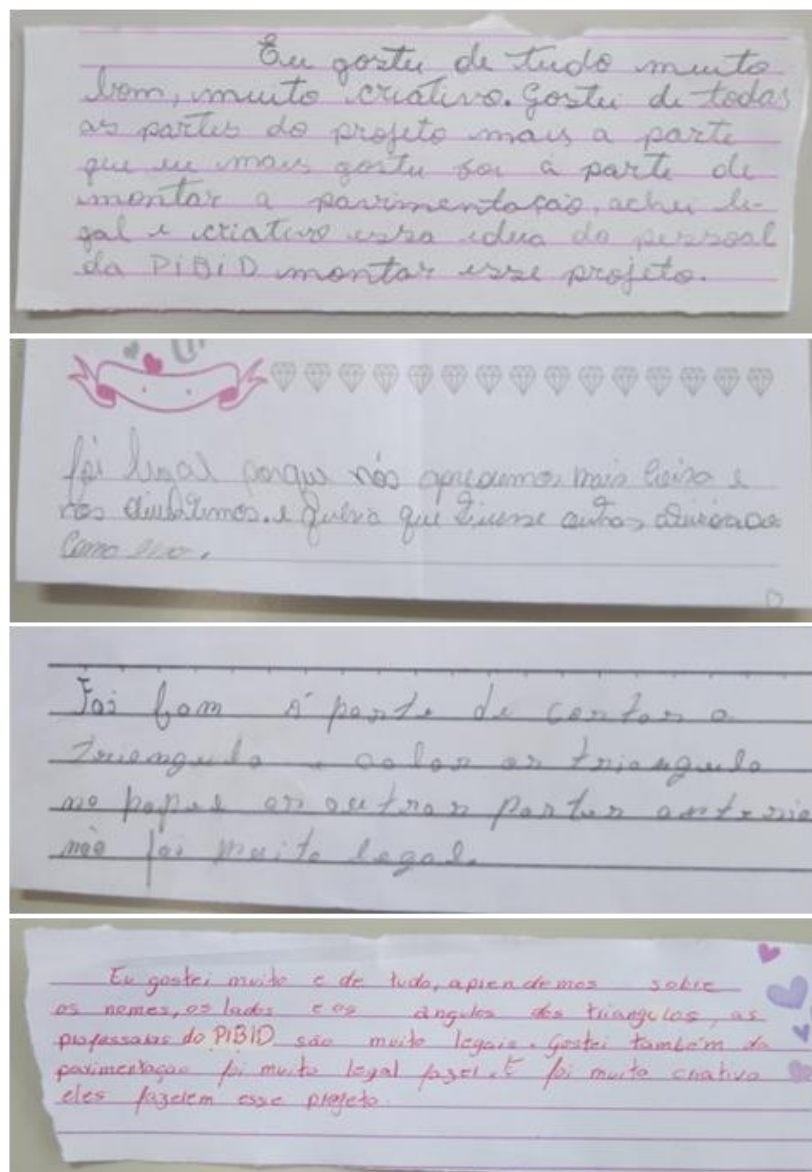 Eu gostei de tudo muito
bom, muito criativo. Gostei de todas
as partes do projeto mais a parte
que eu mais gostei foi a parte de
montar a pavimentação, achei le-
gal e criativo essa ideia do pessoal
da PiBiD montar esse projeto.
foi legal porque nós apredemos mais coisa e
nos divertimos. e queria que tivesse outras
como essa.
Foi bom a parte de contar o
triangulo e colar os triangulo
no papel as outras partes
não foi muito legal.
Eu gostei muito e de tudo, aprendemos sobre
os nomes, os lados e os ângulos dos triangulos, as
professoras do PIBID são muito legais. Gostei também da
pavimentação foi muito legal fazer. E foi muito criativo
eles fazerem esse projeto.